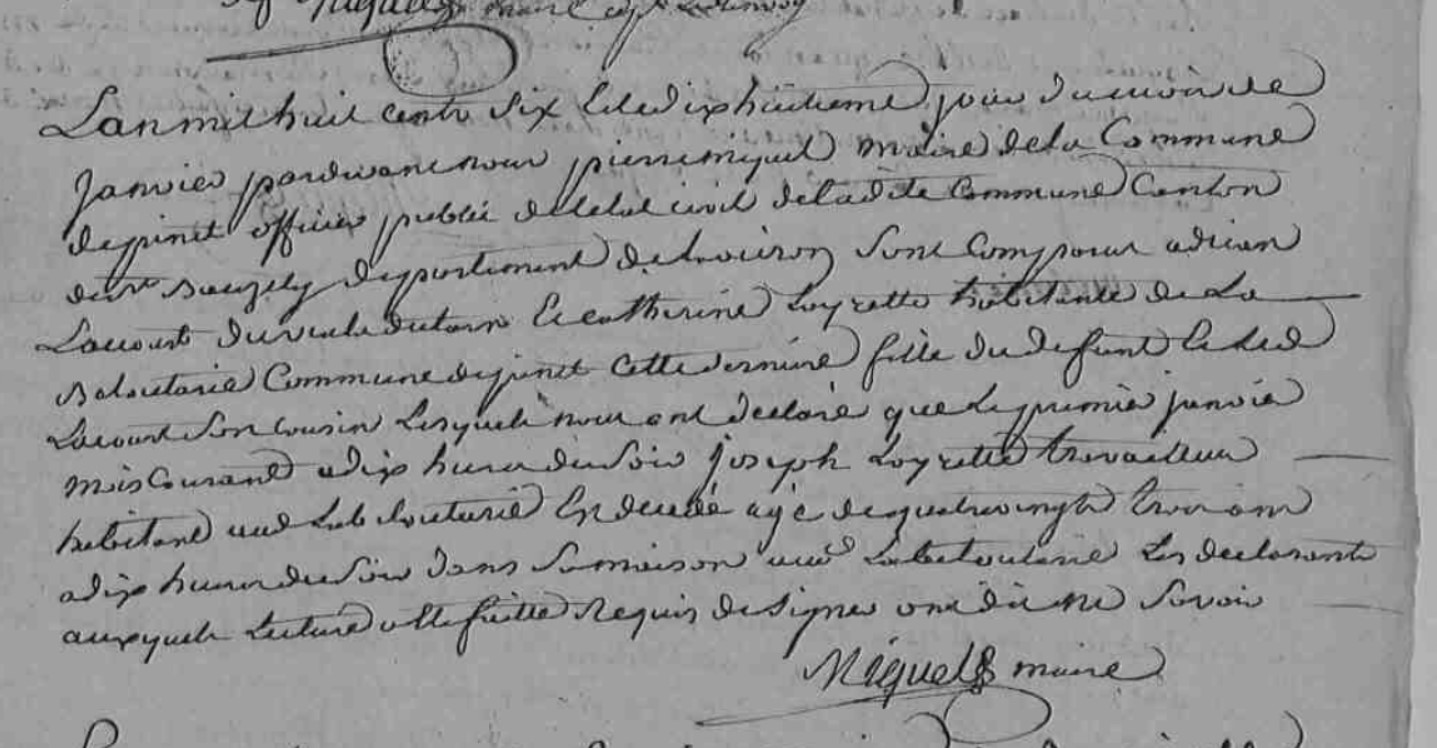 Miguel maire
Lan mil huit cents six Et le dix huitieme jour du mois de
Janvier pardevant nous pierre miquel maire de la Commune
de pinet officier public de letat civil de ladite Commune Canton
de st Beauzely departement de Laveiron sont Comparus adrien
Lacourt du viala du tarn Et catherine Loyrette habitante de La
Baloutarie Commune de pinet cette derniere fille du deffunt Et led
Lacourt son cousin Lesquels nous ont declaré que Le premier janvier
mois Courant a dix heures du soir joseph Loyrette travailleur
habitant aud Est decedé agé de quatre vingts trois ans
a dix heures du soir dans sa maison aud Les declarants
auxquels Lecture a Eté faitte Requis de signer ont dit ne savoir
Miquel maire